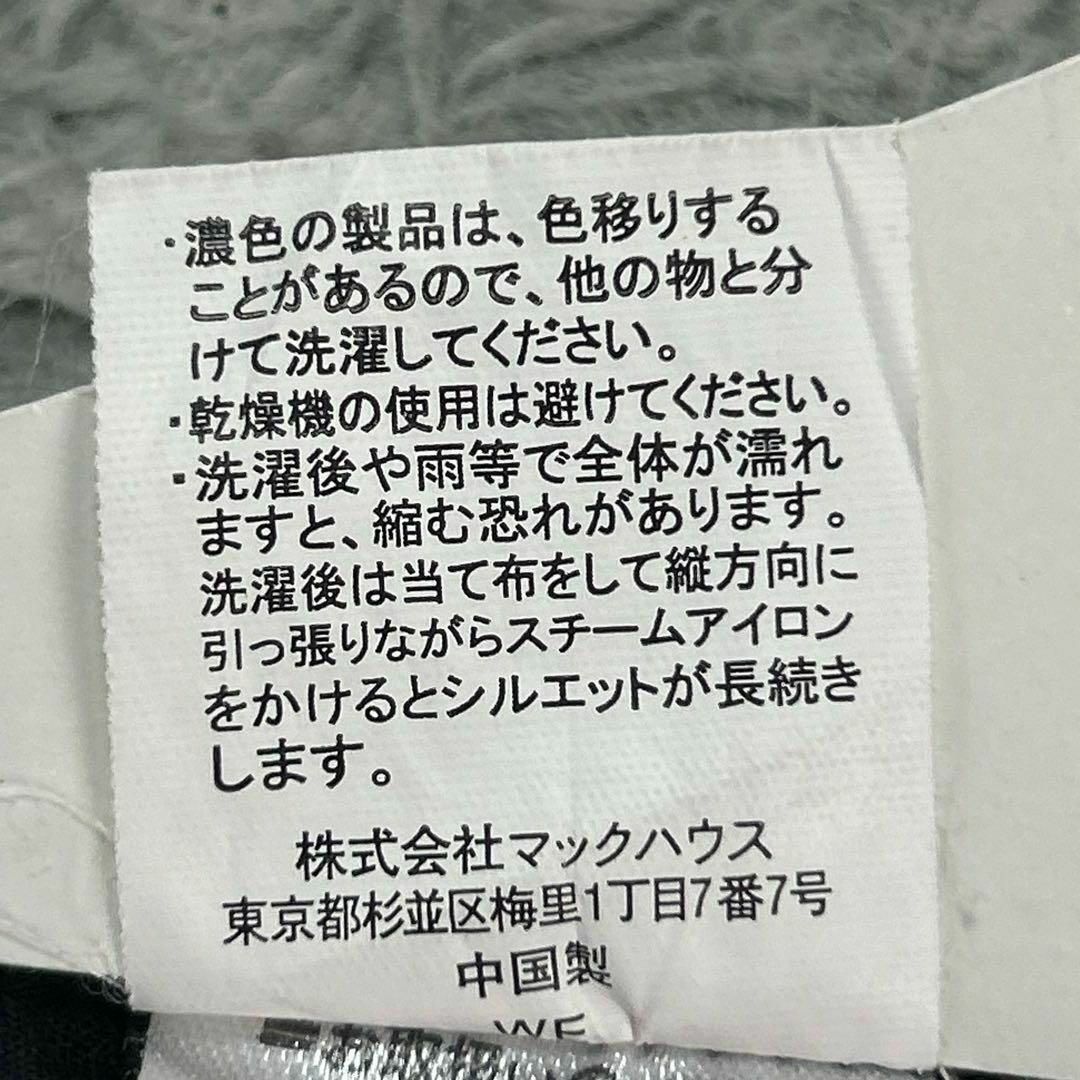 ・濃色の製品は、色移りする
ことがあるので、他の物と分
けて洗濯してください。
・乾燥機の使用は避けてください。
・洗濯後や雨等で全体が濡れ
ますと、縮む恐れがあります。
洗濯後は当て布をして縦方向に
引っ張りながらスチームアイロン
をかけるとシルエットが長続き
します。
株式会社マックハウス
東京都杉並区梅里1丁目7番7号
中国製